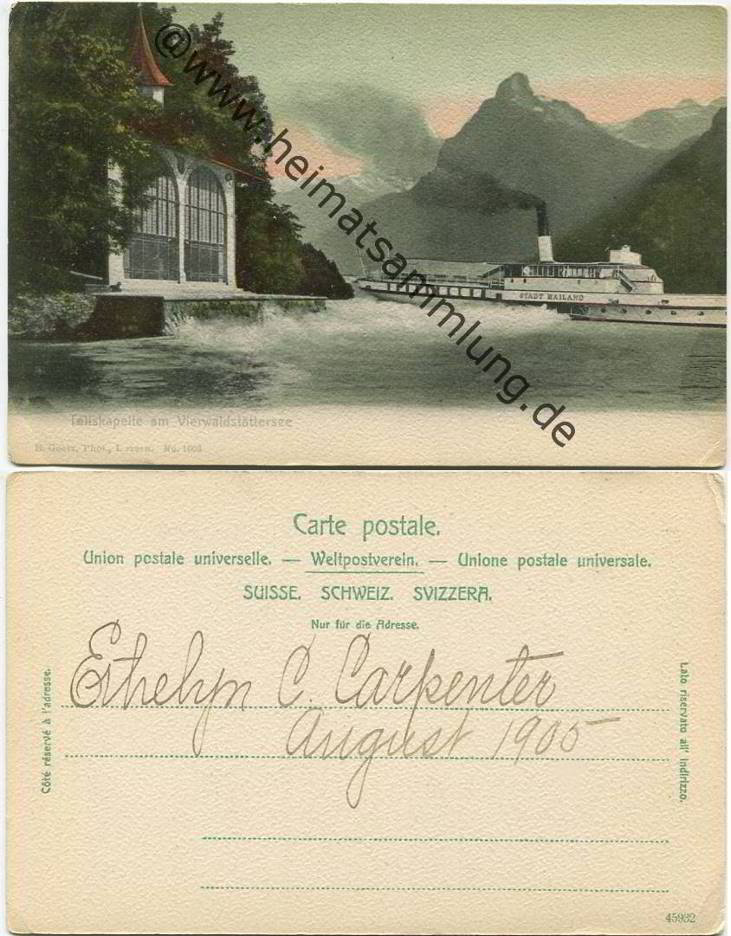 ©www.heimatsammlung.de
STADT MAILAND
Tellskapelle am Vierwaldstättersee
E. Goetz, Phot., Luzern. No. 1003
Carte postale.
Union postale universelle. — Weltpostverein. — Unione postale universale.
SUISSE. SCHWEIZ. SVIZZERA.
Nur für die Adresse.
Côté réservé à l'adresse.
Ethelyn C. Carpenter
August 1905
Lato riservato all' indirizzo.
45932